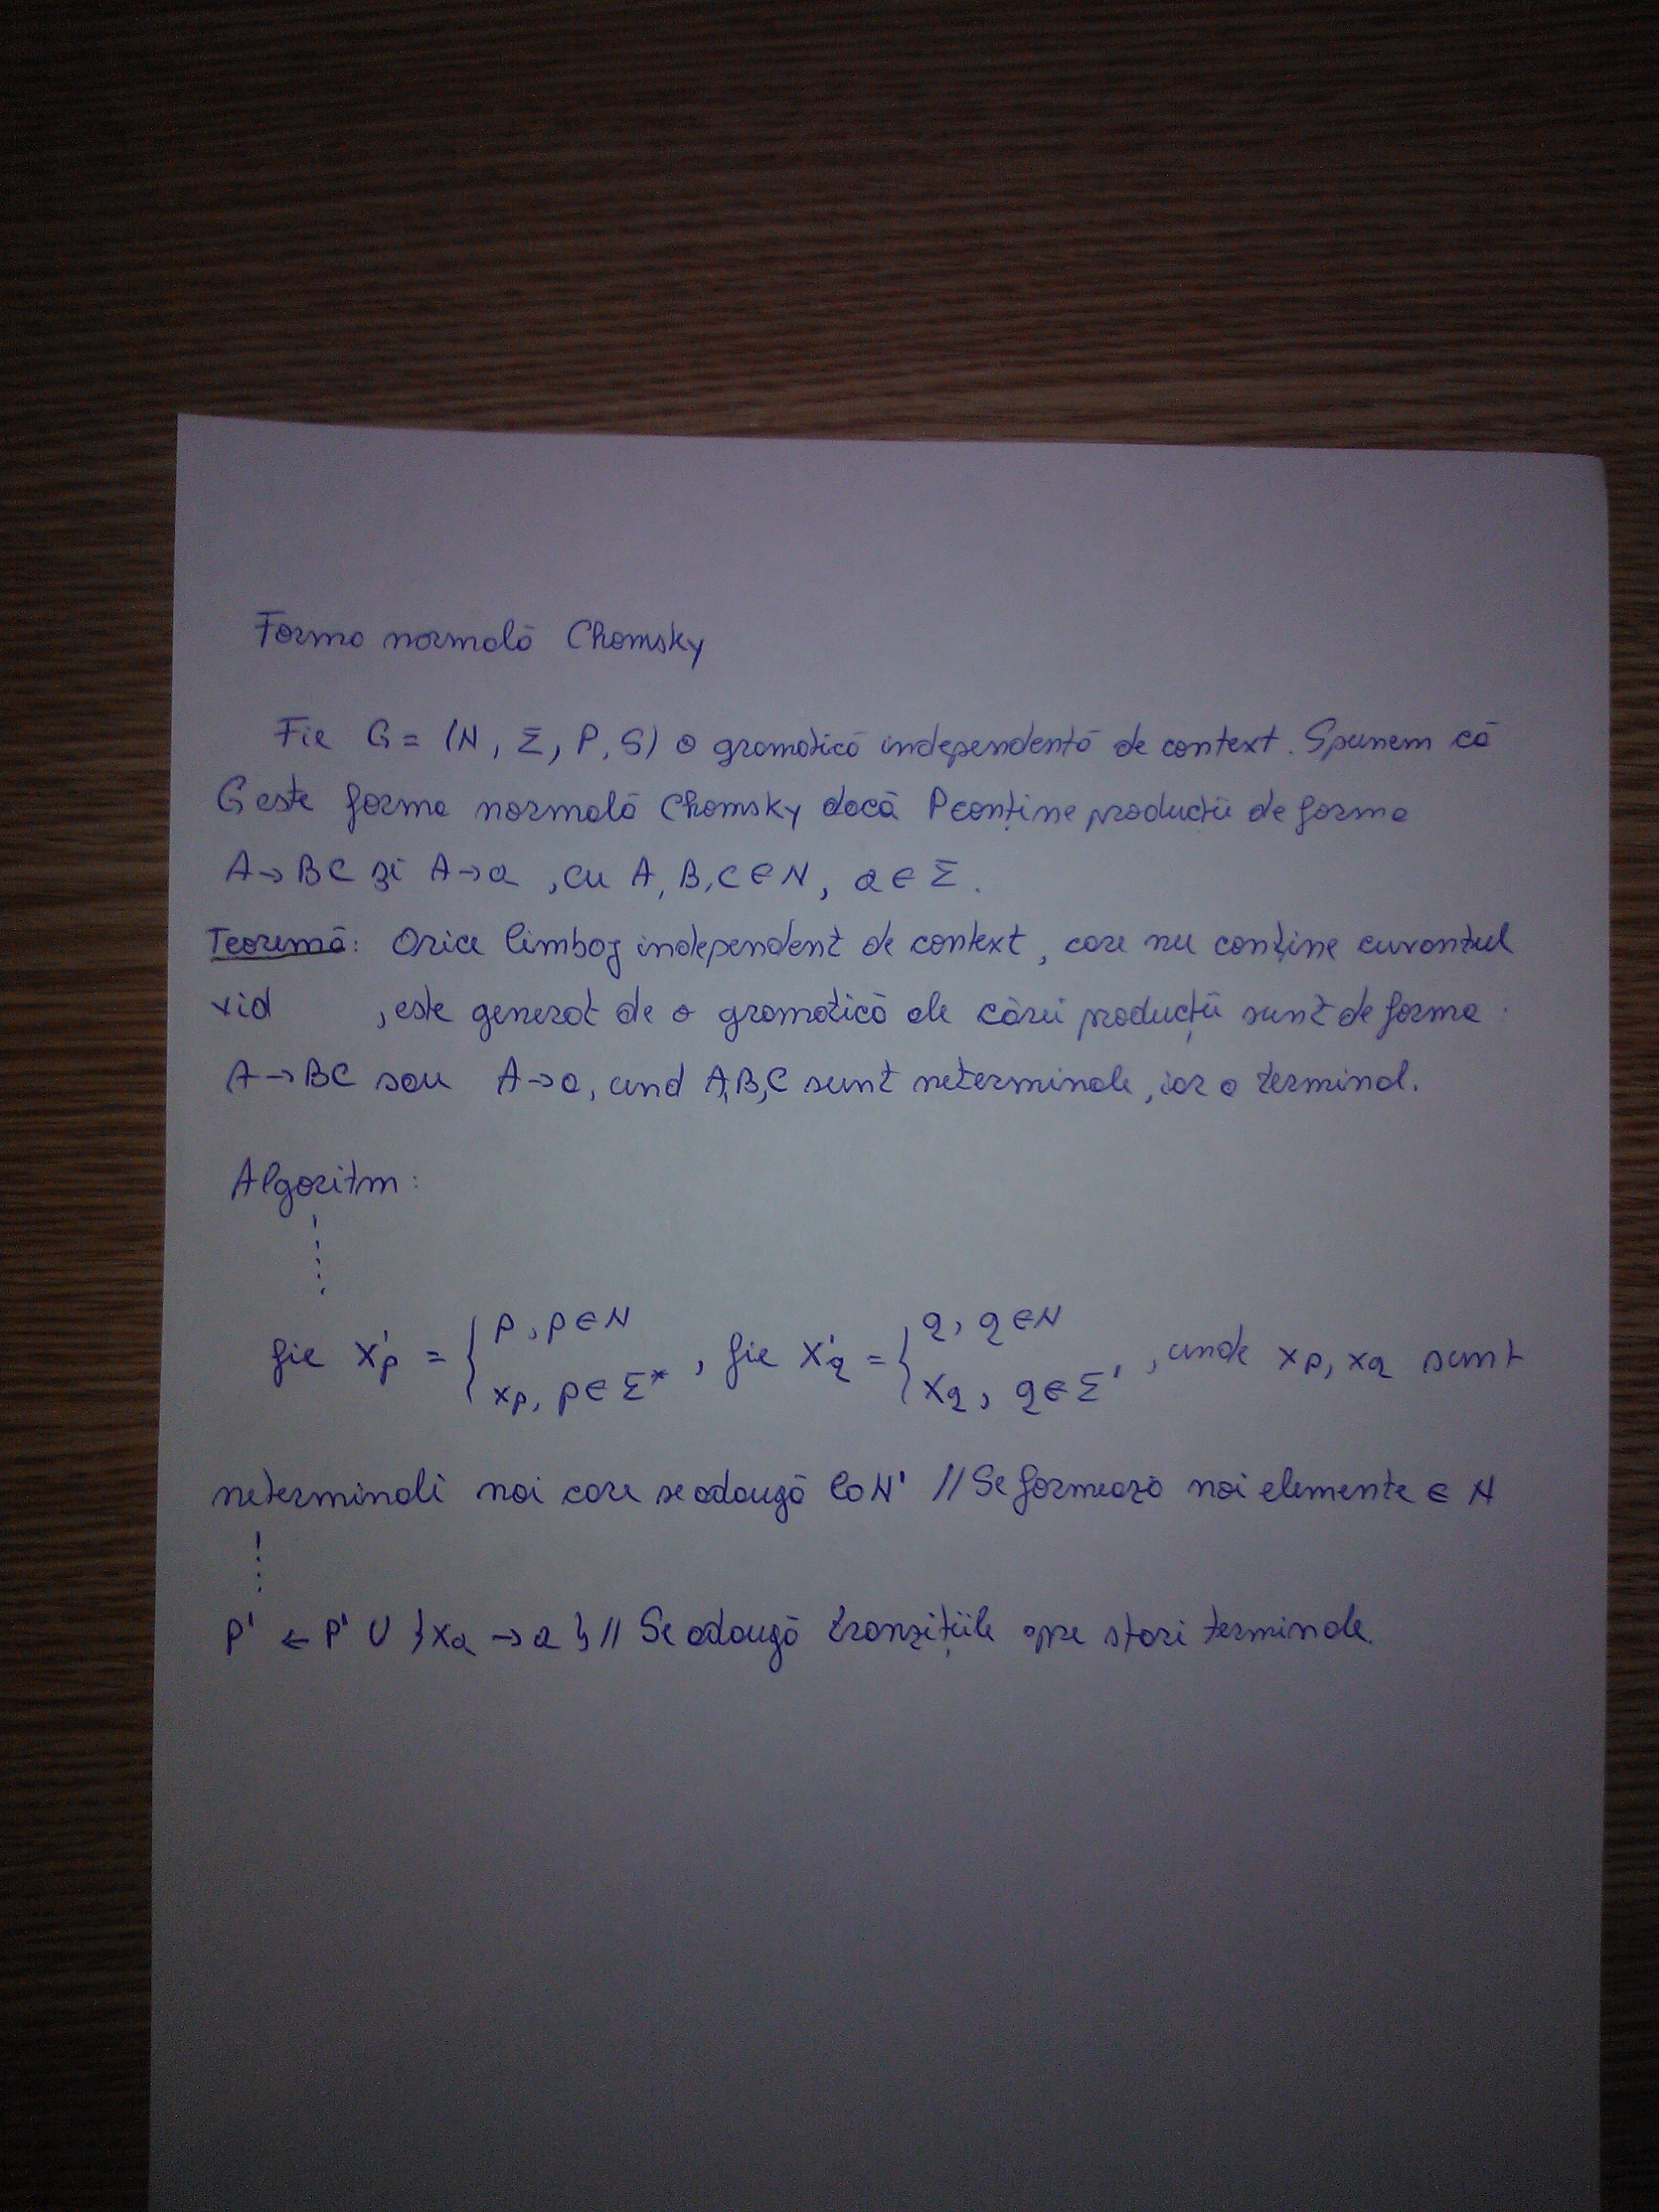 Forma normală Chomsky
Fie G = (N, Σ, P, S) o gramatică independentă de context. Spunem că
G este forma normală Chomsky dacă P conține producții de forma
A → BC și A → a, cu A, B, C ∈ N, a ∈ Σ.
Teoremă: Orice limbaj independent de context, care nu conține cuvantul
vid , este generat de o gramatică ale cărei producții sunt de forma :
A → BC sau A → a, und A, B, C sunt neterminale, iar a terminal.
Algoritm:
fie X'p = { p, p ∈ N , fie X'q = { q, q ∈ N , unde xp, xq sunt
xp, p ∈ Σ* xq, q ∈ Σ'
neterminali noi care se adaugă la N' // Se formează noi elemente ∈ N
P' ← P' ∪ {Xa → a} // Se adaugă tranzițiile spre stari terminale.